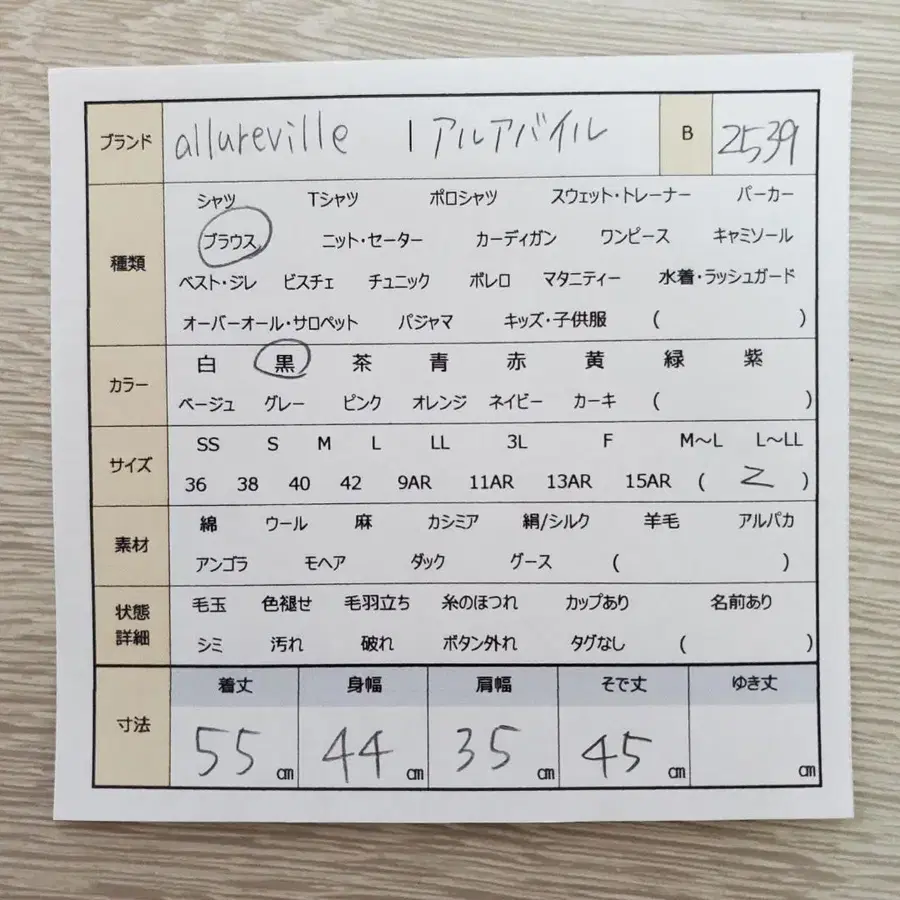 ブランド allureville | アルアバイル B 2539
種類 シャツ Tシャツ ポロシャツ スウェット・トレーナー パーカー
ブラウス ニット・セーター カーディガン ワンピース キャミソール
ベスト・ジレ ビスチェ チュニック ボレロ マタニティー 水着・ラッシュガード
オーバーオール・サロペット パジャマ キッズ・子供服 ( )
カラー 白 黒 茶 青 赤 黄 緑 紫
ベージュ グレー ピンク オレンジ ネイビー カーキ ( )
サイズ SS S M L LL 3L F M～L L～LL
36 38 40 42 9AR 11AR 13AR 15AR ( 2 )
素材 綿 ウール 麻 カシミア 絹/シルク 羊毛 アルパカ
アンゴラ モヘア ダック グース ( )
状態 毛玉 色褪せ 毛羽立ち 糸のほつれ カップあり 名前あり
詳細 シミ 汚れ 破れ ボタン外れ タグなし ( )
寸法 着丈 身幅 肩幅 そで丈 ゆき丈
55 cm 44 cm 35 cm 45 cm cm